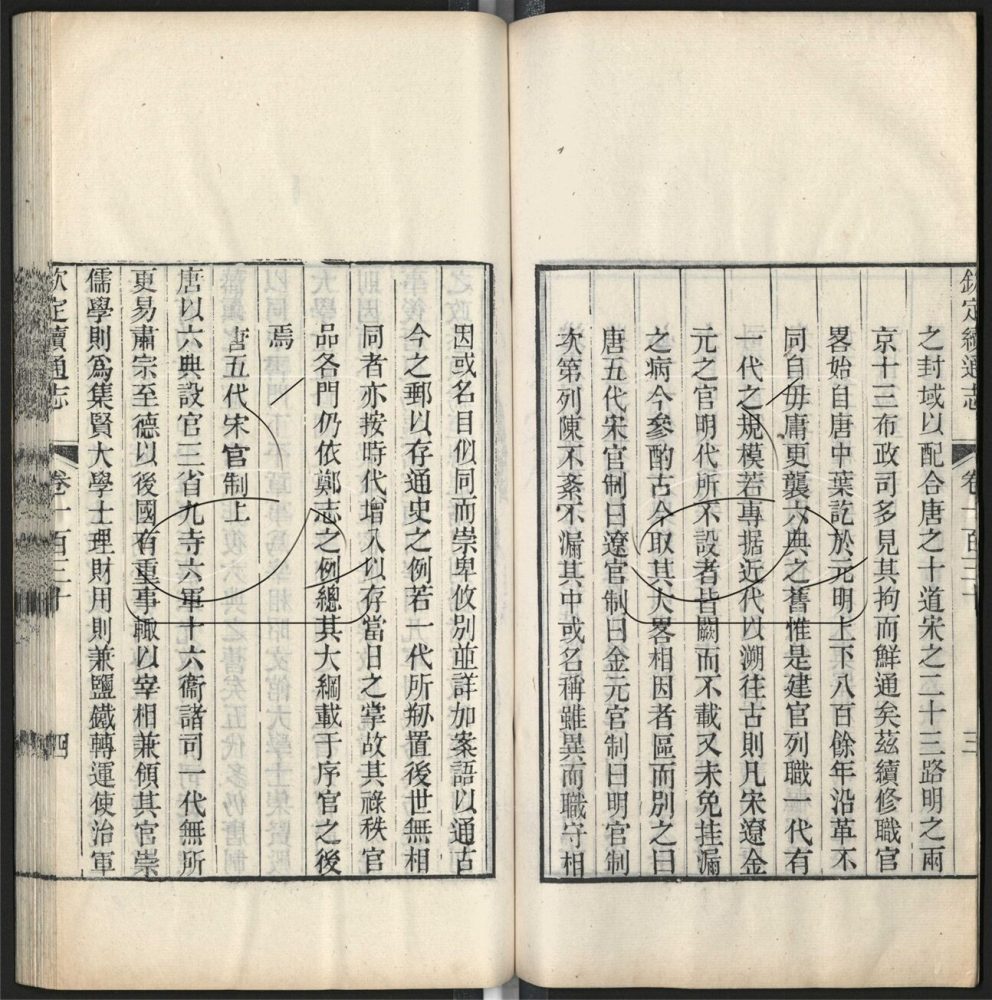 欽定續通志
卷一百三十
三
之封域以配合唐之十道宋之二十三路明之兩
京十三布政司多見其拘而鮮通矣茲續修職官
畧始自唐中葉訖於元明上下八百餘年沿革不
同自毋庸更襲六典之舊惟是建官列職一代有
一代之規模若專据近代以溯往古則凡宋遼金
元之官明代所不設者皆闕而不載又未免挂漏
之病今參酌古今取其大畧相因者區而別之曰
唐五代宋官制曰遼官制曰金元官制曰明官制
次第列陳不紊不漏其中或名稱雖異而職守相
因或名目似同而崇卑攸別並詳加案語以通古
今之郵以存通史之例若一代所剏置後世無相
同者亦按時代增入以存當日之掌故其祿秩官
品各門仍依鄭志之例總其大綱載于序官之後
焉
唐五代宋官制上
唐以六典設官三省九寺六軍十六衞諸司一代無所
更易肅宗至德以後國有重事輙以宰相兼領其官崇
儒學則爲集賢大學士理財用則兼鹽鐵轉運使治軍
欽定續通志
卷一百三十
四